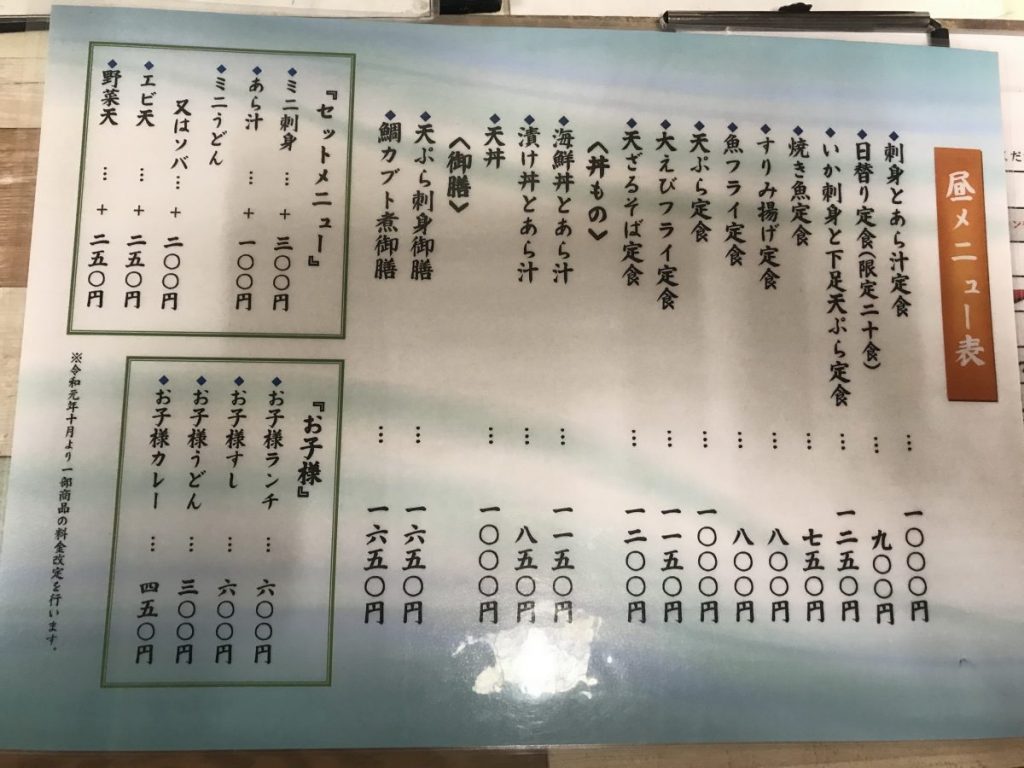 昼メニュー表
◆刺身とあら汁定食 … 一〇〇〇円
◆日替り定食(限定二十食) … 九〇〇円
◆いか刺身と下足天ぷら定食 … 一二五〇円
◆焼き魚定食 … 七五〇円
◆すりみ揚げ定食 … 八〇〇円
◆魚フライ定食 … 八〇〇円
◆天ぷら定食 … 一〇〇〇円
◆大えびフライ定食 … 一一五〇円
◆天ざるそば定食 … 一二〇〇円
〈丼もの〉
◆海鮮丼とあら汁 … 一一五〇円
◆漬け丼とあら汁 … 八五〇円
◆天丼 … 一〇〇〇円
〈御膳〉
◆天ぷら刺身御膳 … 一六五〇円
◆鯛カブト煮御膳 … 一六五〇円
『セットメニュー』
◆ミニ刺身 … + 三〇〇円
◆あら汁 … + 一〇〇円
◆ミニうどん
又はソバ… + 二〇〇円
◆エビ天 … + 二五〇円
◆野菜天 … + 二五〇円
『お子様』
◆お子様ランチ … 六〇〇円
◆お子様すし … 六〇〇円
◆お子様うどん … 三〇〇円
◆お子様カレー … 四五〇円
※令和元年十月より一部商品の料金改定を行います。